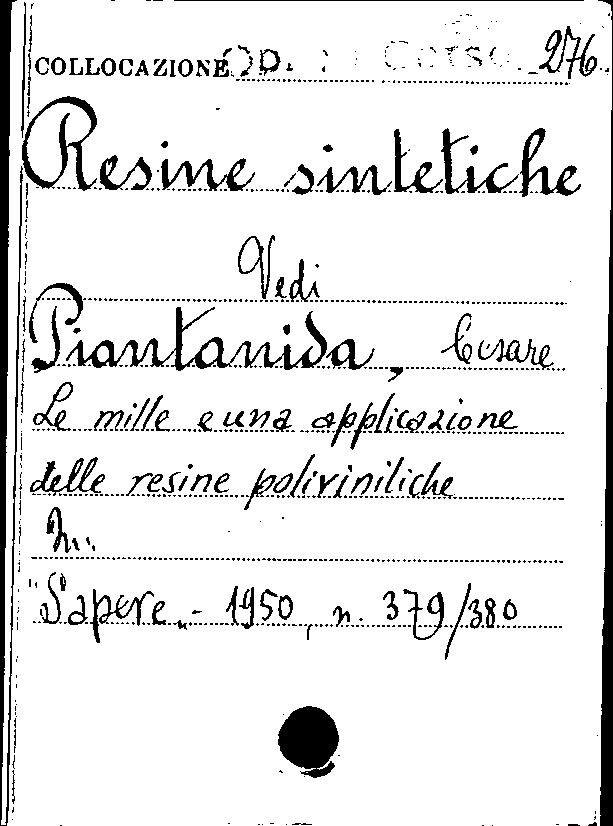 COLLOCAZIONE OP. Corso 276
Resine sintetiche
Vedi
Piantanida, Cesare
Le mille e una applicazione
delle resine poliviniliche
In:
"Sapere„ - 1950, n. 379/380